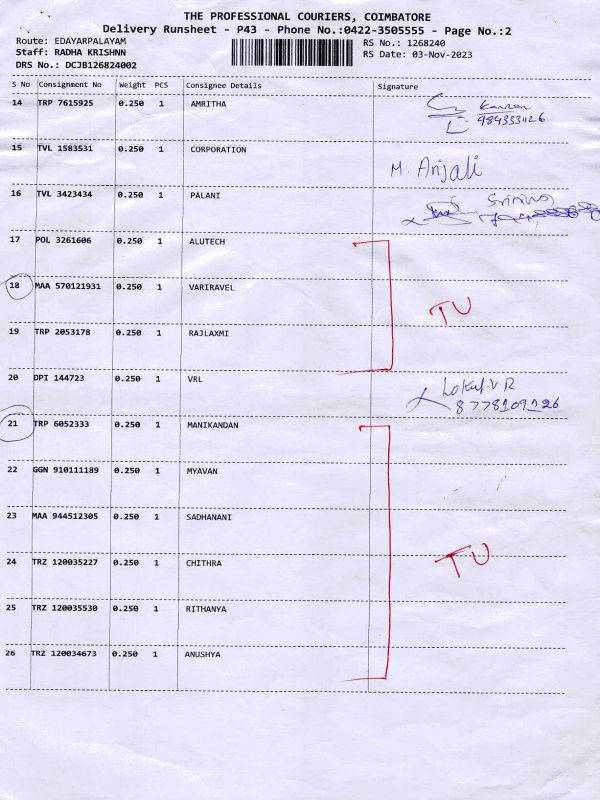 THE PROFESSIONAL COURIERS, COIMBATORE
Delivery Runsheet - P43 - Phone No.:0422-3505555 - Page No.:2
Route: EDAYARPALAYAM
RS No.: 1268240
Staff: RADHA KRISHNN
RS Date: 03-Nov-2023
DRS No.: DCJB126824002
S No Consignment No Weight PCS Consignee Details Signature
14 TRP 7615925 0.250 1 AMRITHA
15 TVL 1583531 0.250 1 CORPORATION M. Anjali
16 TVL 3423434 0.250 1 PALANI
17 POL 3261606 0.250 1 ALUTECH
18 MAA 570121931 0.250 1 VARIRAVEL
TU
19 TRP 2053178 0.250 1 RAJLAXMI
20 DPI 144723 0.250 1 VRL
8778109126
21 TRP 6052333 0.250 1 MANIKANDAN
22 GGN 910111189 0.250 1 MYAVAN
23 MAA 944512305 0.250 1 SADHANANI
24 TRZ 120035227 0.250 1 CHITHRA TU
25 TRZ 120035530 0.250 1 RITHANYA
26 TRZ 120034673 0.250 1 ANUSHYA